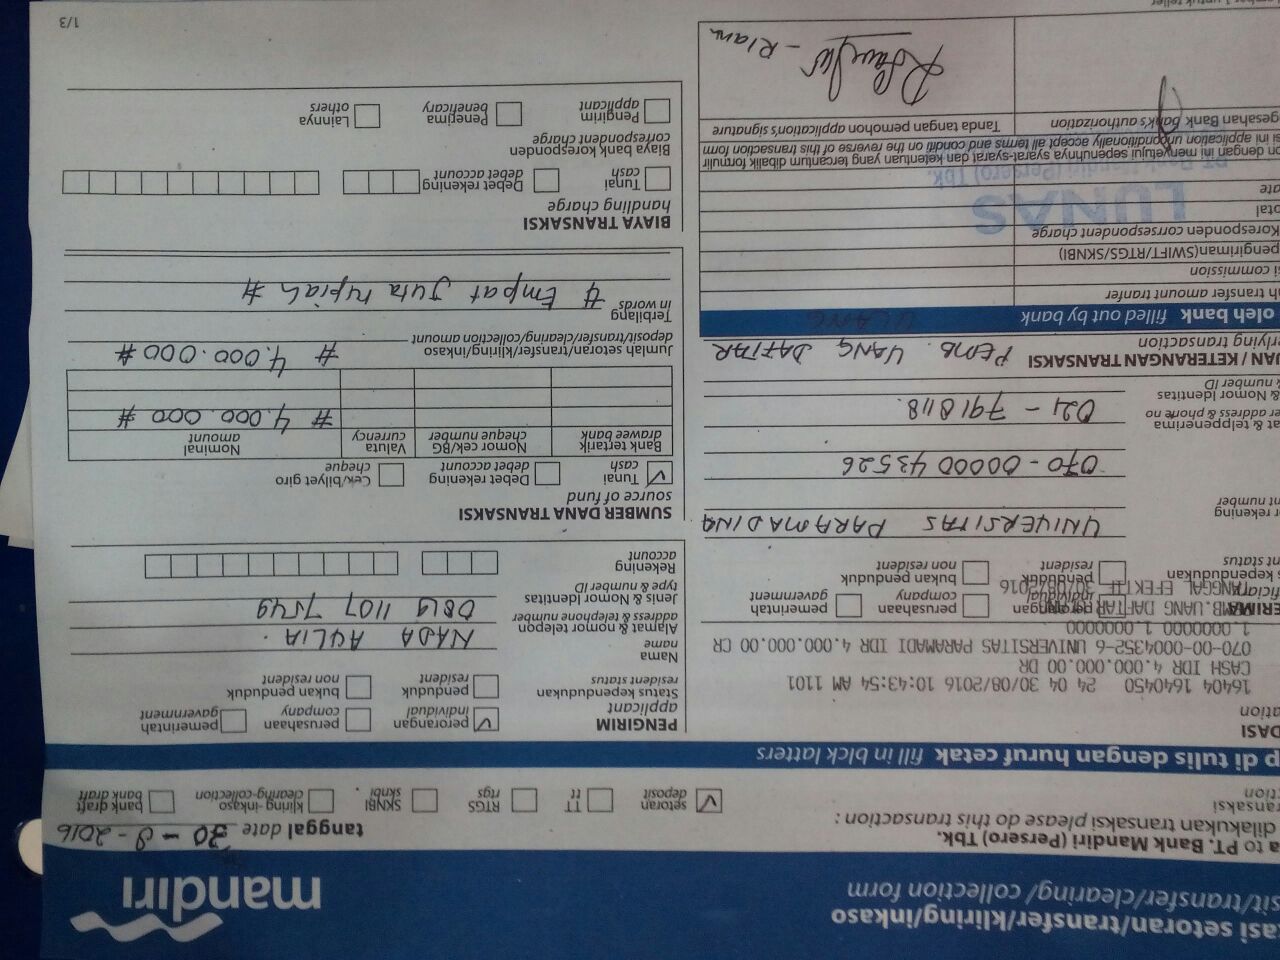 asi setoran/transfer/kliring/inkaso
sit/transfer/clearing/ collection form
mandiri
a to PT. Bank Mandiri (Persero) Tbk.
tanggal date 30 - 8 - 2016
dilakukan transaksi please do this transaction :
ransaksi
ction
setoran
deposit
TT
tt
RTGS
rtgs
SKNBI
sknbi
kliring-inkaso
clearing-collection
bank draft
bank draft
p di tulis dengan huruf cetak fill in blck latters
DASI
ation
16404 1640450 24 04 30/08/2016 10:43:54 AM 1101
CASH IDR 4.000.000.00 DR
070-00-0004352-6 UNIVERSITAS PARAMADI IDR 4.000.000.00 CR
1.0000000 1.0000000
PEMB.UANG DAFTAR ULANG
TANGGAL EFEKTIF 30/08/2016
ERIMA
ficiary
perorangan
individual
perusahaan
company
pemerintah
government
s kependudukan
nt status
penduduk
resident
bukan penduduk
non resident
UNIVERSITAS PARAMADINA
or rekening
nt number
070-0000043526
at & telppelerima
er address & phorfe no
021 - 7918118.
& Nomor Identitas
& number ID
UAN / KETERANGAN TRANSAKSI
erlying transaction
PEMB. UANG DAFTAR
ULANG
oleh bank filled out by bank
h transfer amount tranfer
si commission
pengiriman(SWIFT/RTGS/SKNBI)
Koresponden corsespondent charge
otal
ate
LUNAS
PT. Bank Mandiri (Persero) Tbk.
on dengan ini menyetujui sepenuhnya syarat-syarat dan ketentuan yang tercantum dibalik formulir
si ini application unpoditionally accept all terms and conditi on the reverse of this transaction form
gesahan Bank bank's authorization
Tanda tangan pemohon application's signature
PENGIRIM
applicant
perorangan
individual
perusahaan
company
pemerintah
government
Status kependudukan
resident status
penduduk
resident
bukan penduduk
non resident
Nama
name
NADA AULIA.
Alamat & nomor telepon
address & telephone number
0819 1107 7549
Jenis & Nomor Identitas
type & number ID
Rekening
account
SUMBER DANA TRANSAKSI
source of fund
Tunai
cash
Debet rekening
debet account
Cek/bilyet giro
cheque
Bank tertarik
drawee bank
Nomor cek/BG
cheque number
Valuta
currency
Nominal
amount
# 4.000.000 #
Jumlah setoran/transfer/kliring/inkaso
deposit/transfer/clearing/collection amount
# 4.000.000 #
Terbilang
in words
# Empat Juta rupiah #
BIAYA TRANSAKSI
handling charge
Tunai
cash
Debet rekening
debet account
Biaya bank koresponden
correspondent charge
Pengirim
applicant
Penerima
beneficary
Lainnya
others
1/3